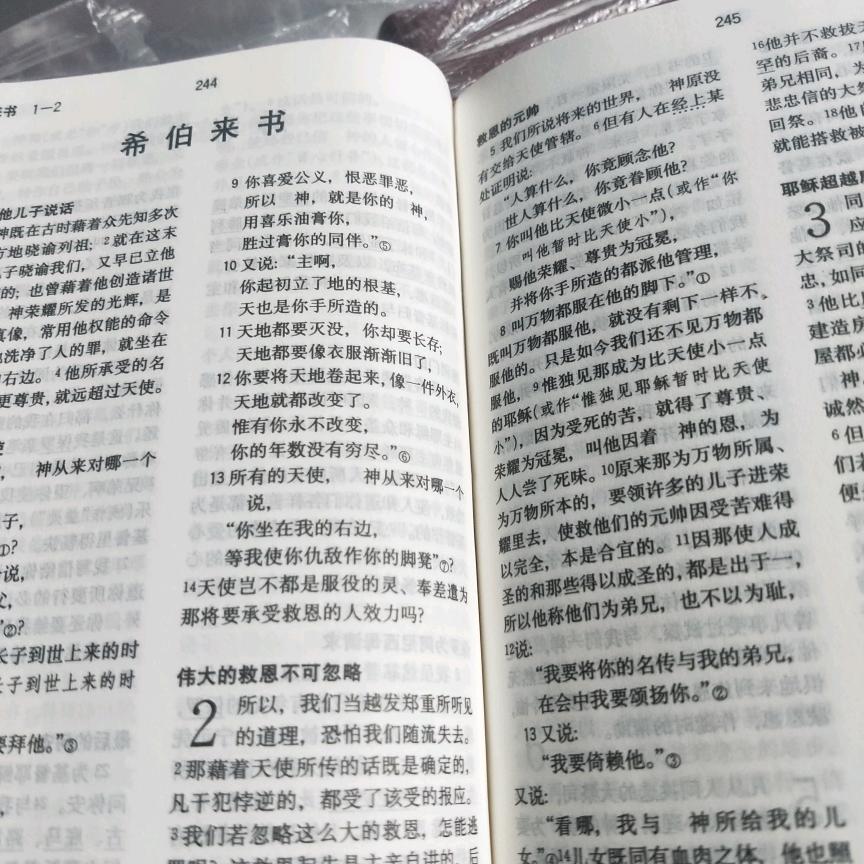 244
书 1—2
希伯来书
他儿子说话
神既在古时藉着众先知多次
方地晓谕列祖，²就在这末
子晓谕我们，又早已立他
的；也曾藉着他创造诸世
神荣耀所发的光辉，是
真像，常用他权能的命令
他洗净了人的罪，就坐在
右边。⁴他所承受的名
更尊贵，就远超过天使。
使
神从来对哪一个
子，
①？
说，
父，
”②？
长子到世上来的时
长子到世上来的时
要拜他。”③
9 你喜爱公义，恨恶罪恶，
所以 神，就是你的 神，
用喜乐油膏你，
胜过膏你的同伴。”⑤
10 又说：“主啊，
你起初立了地的根基，
天也是你手所造的。
11 天地都要灭没，你却要长存；
天地都要像衣服渐渐旧了，
12 你要将天地卷起来，像一件外衣，
天地就都改变了。
惟有你永不改变，
你的年数没有穷尽。”⑥
13 所有的天使， 神从来对哪一个
说，
“你坐在我的右边，
等我使你仇敌作你的脚凳”⑦？
14天使岂不都是服役的灵、奉差遣为
那将要承受救恩的人效力吗？
伟大的救恩不可忽略
2 所以，我们当越发郑重所听见
的道理，恐怕我们随流失去。
²那藉着天使所传的话既是确定的，
凡干犯悖逆的，都受了该受的报应。
³我们若忽略这么大的救恩，怎能逃
罪呢？这救恩起先是主亲自讲的，后
245
救恩的元帅
5 我们所说将来的世界， 神原没
有交给天使管辖。⁶但有人在经上某
处证明说：
“人算什么，你竟顾念他？
世人算什么，你竟眷顾他？
7 你叫他比天使微小一点（或作“你
叫他暂时比天使小”），
赐他荣耀、尊贵为冠冕，
并将你手所造的都派他管理，
8 叫万物都服在他的脚下。”①
既叫万物都服他，就没有剩下一样不
服他的。只是如今我们还不见万物都
服他，⁹惟独见那成为比天使小一点
的耶稣（或作“惟独见耶稣暂时比天使
小”），因为受死的苦，就得了尊贵、
荣耀为冠冕，叫他因着 神的恩，为
人人尝了死味。¹⁰原来那为万物所属、
为万物所本的，要领许多的儿子进荣
耀里去，使救他们的元帅因受苦难得
以完全，本是合宜的。¹¹因那使人成
圣的和那些得以成圣的，都是出于一，
所以他称他们为弟兄，也不以为耻，
¹²说：
“我要将你的名传与我的弟兄，
在会中我要颂扬你。”②
13 又说：
“我要倚赖他。”③
又说：
“看哪，我与 神所给我的儿
女。”④¹⁴儿女既同有血肉之体，他也照
¹⁶他并不救拔天
罕的后裔。¹⁷
弟兄相同，为
悲忠信的大祭
回祭。¹⁸他
就能搭救被
耶稣超越
3 同
应
大祭司的
忠，如同
³他比
建造房
屋都必
神
诚然
⁶但
们若
便